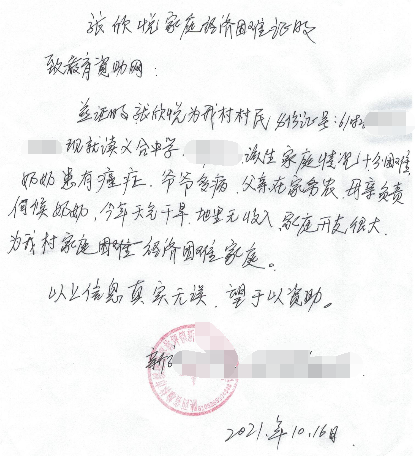 张欣悦家庭经济困难证明
致教育资助网:
兹证明张欣悦为我村村民 身份证号:6182
现就读义合中学, 该生家庭情况十分困难
奶奶患有癌症、爷爷多病,父亲在家务农,母亲负责
伺候奶奶,今年天气干旱,地里无收入,家庭开支很大,
为我村家庭困难经济困难家庭。
以上信息真实无误,望予以资助。
2021.年10.16日